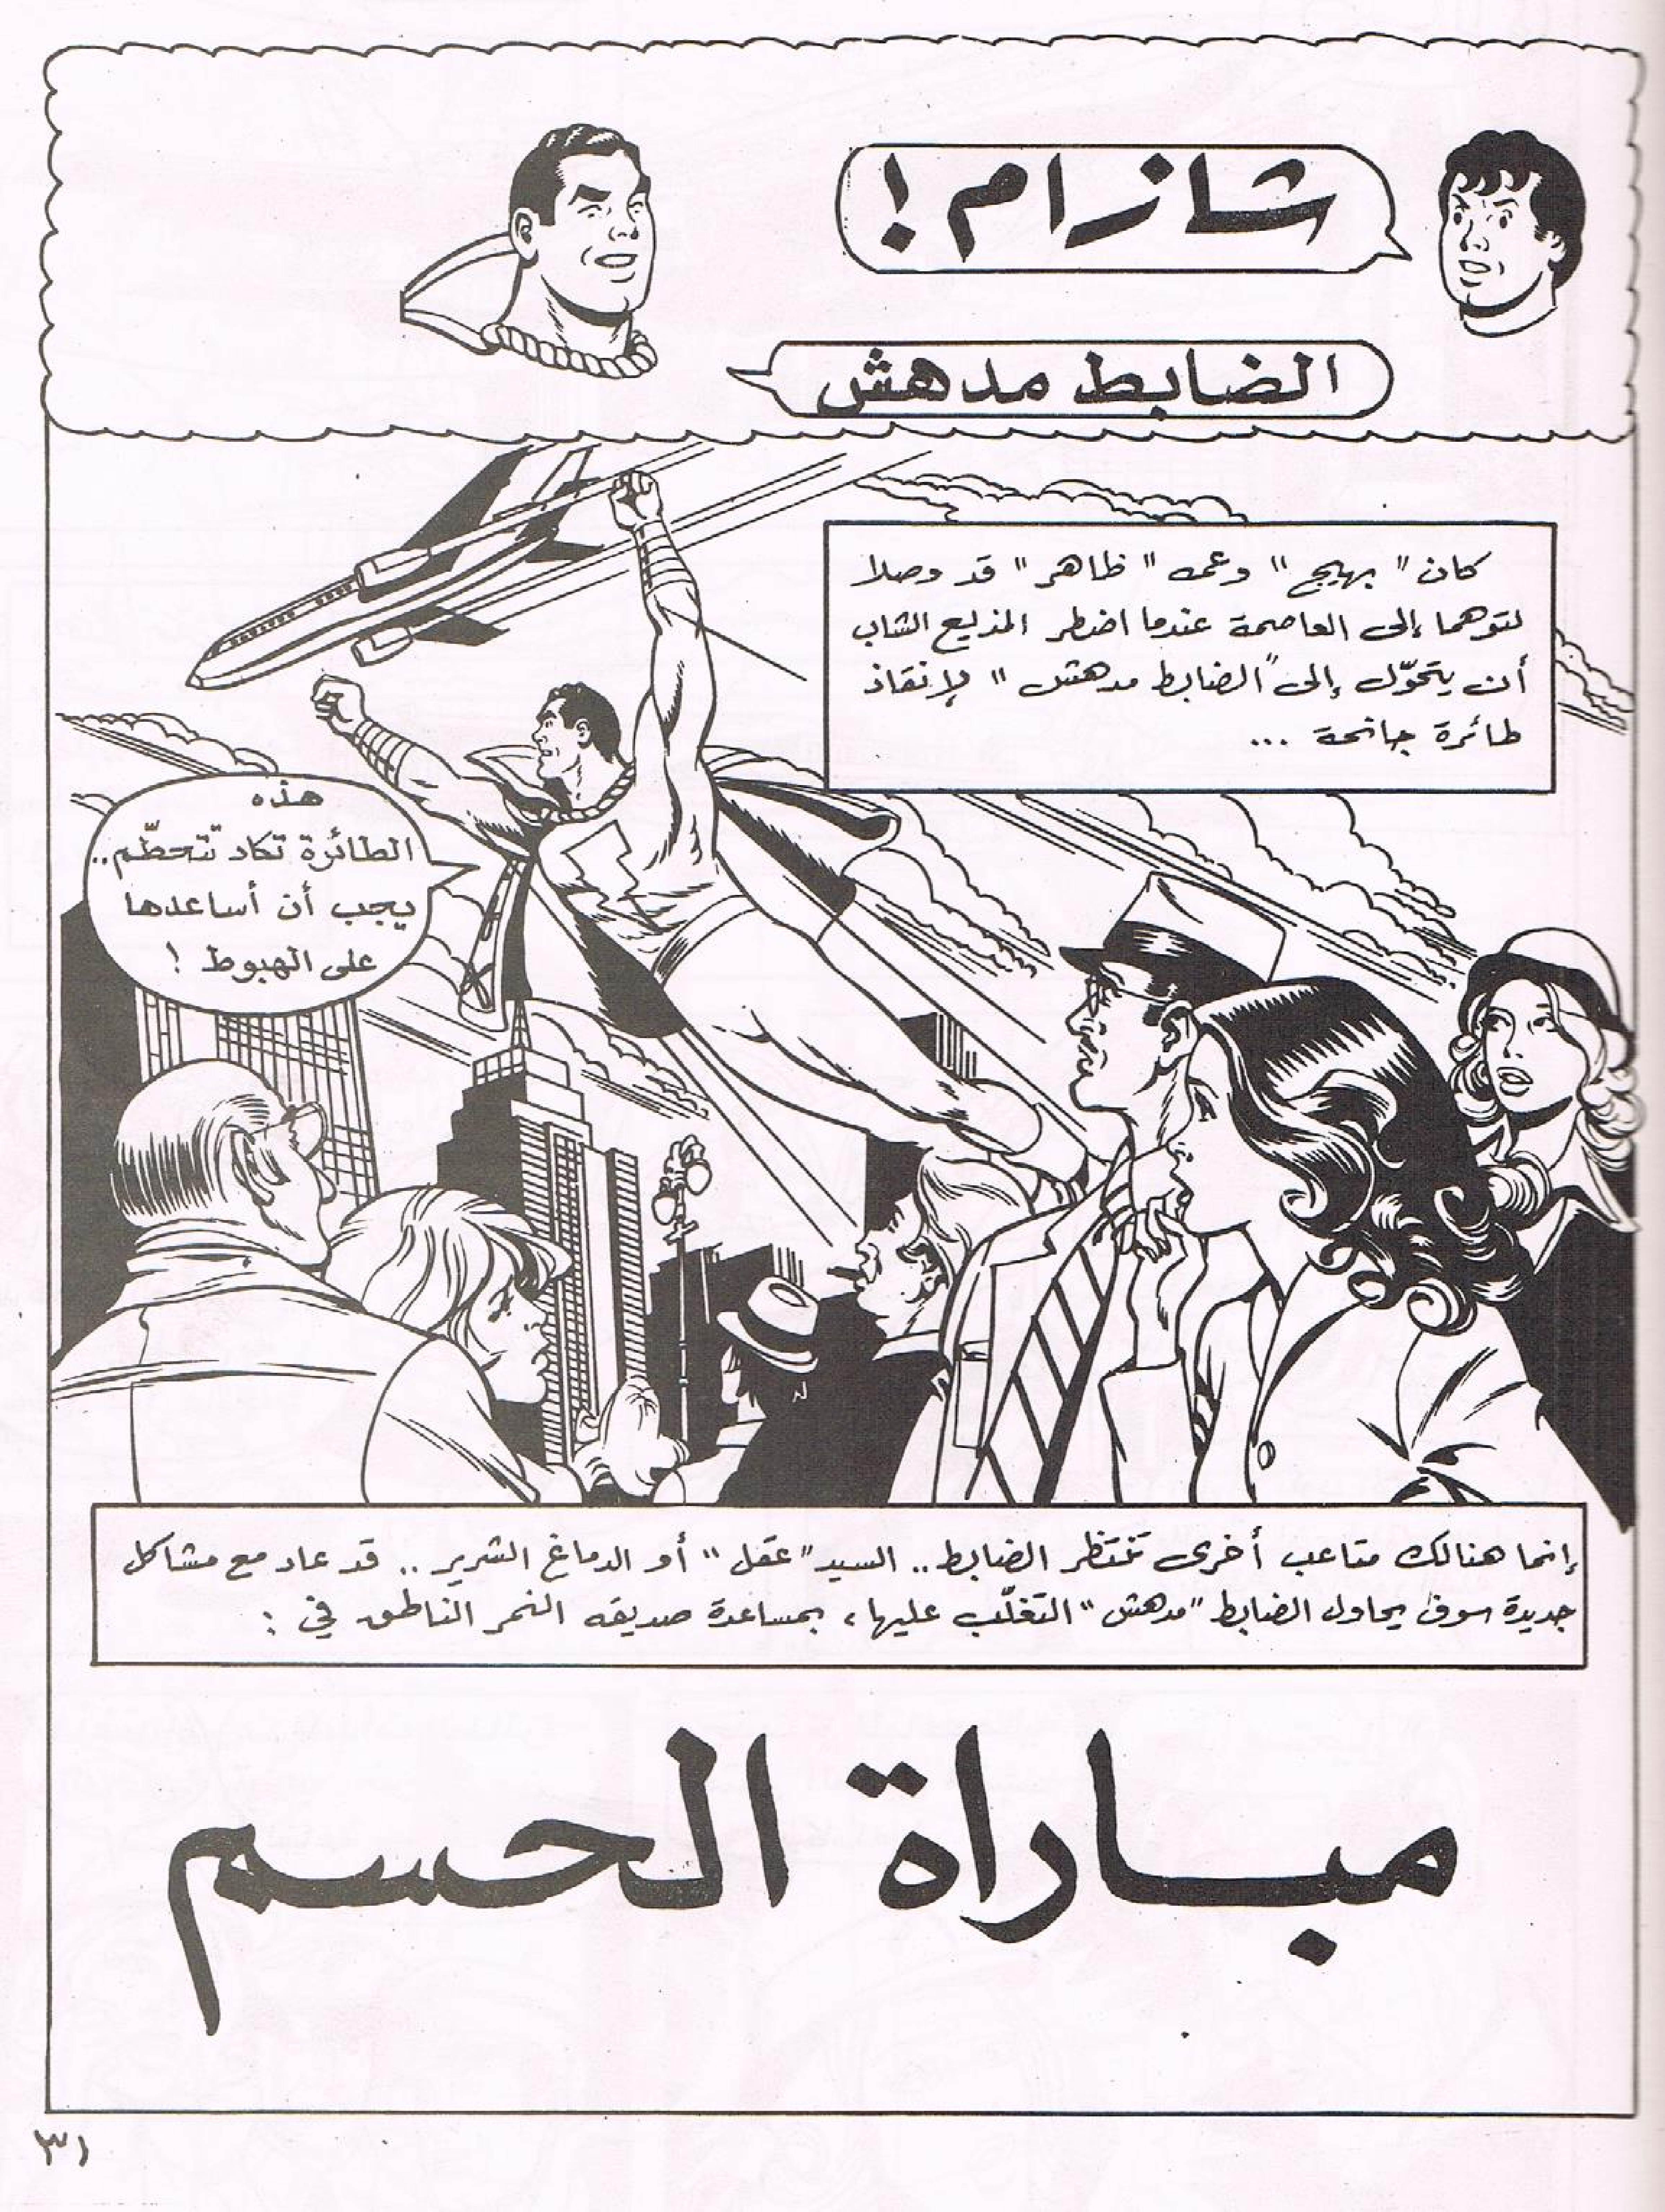 شازام !
الضابط مدهش
كان " بهيج " وعمه " ظاهر " قد وصلا
لتوهما إلى العاصمة عندما اضطر المذيع الشاب
أن يتحوّل إلى " الضابط مدهش " لإنقاذ
طائرة جانحة ...
هذه
الطائرة تكاد تتحطّم ..
يجب أن أساعدها
على الهبوط !
إنما هنالك متاعب أخرى تنتظر الضابط .. السيد " عقل " أو الدماغ الشرير .. قد عاد مع مشاكل
جديدة سوف يحاول الضابط " مدهش " التغلّب عليها ، بمساعدة صديقه النمر الناطق في :
مباراة الحسم
٣١